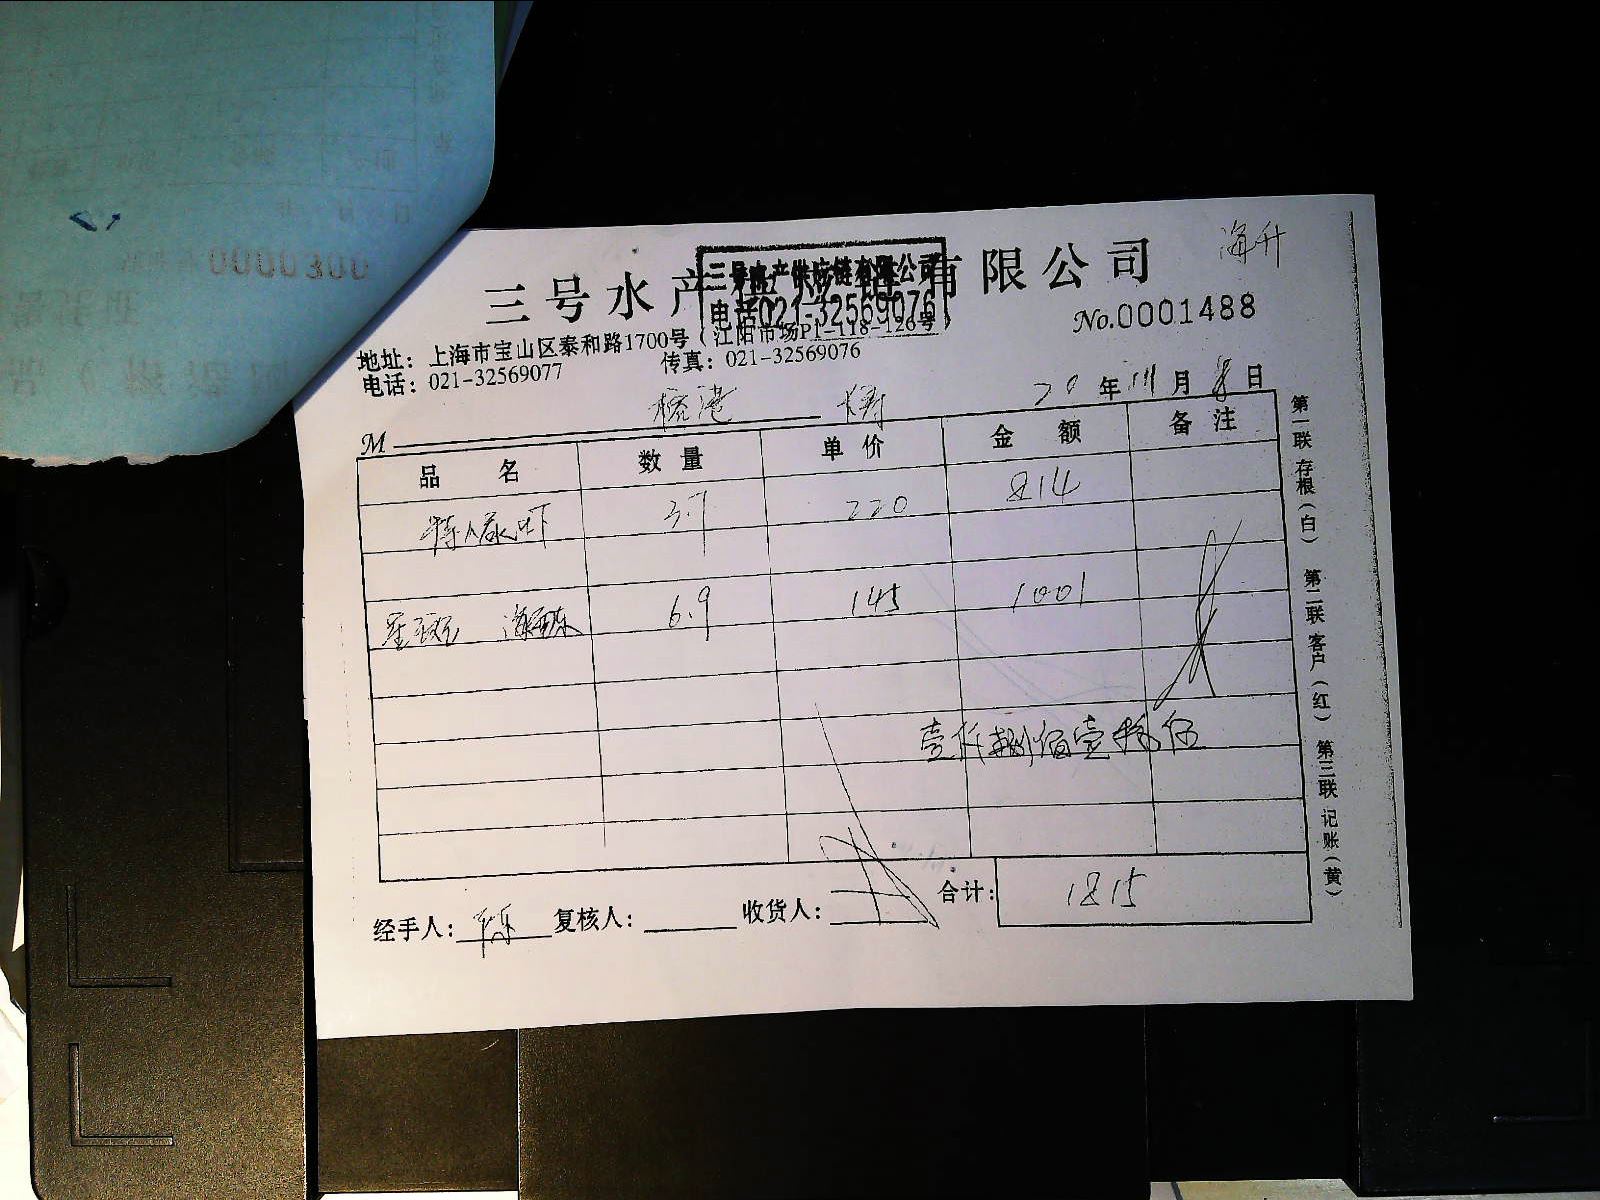 0000300
海升
三号水产供应链有限公司
三号水产供应链有限公司
电话021-32569076
No.0001488
地址：上海市宝山区泰和路1700号（江阳市场P1-118-126号
电话：021-32569077 传真：021-32569076
20 年 月 8 日
M
品 名 数 量 单 价 金 额 备 注
3.7 220 814
6.9 145 1001
壹仟捌佰壹拾伍
合计： 1815
经手人： 复核人： 收货人：
第一联 存根（白） 第二联 客户（红） 第三联 记账（黄）